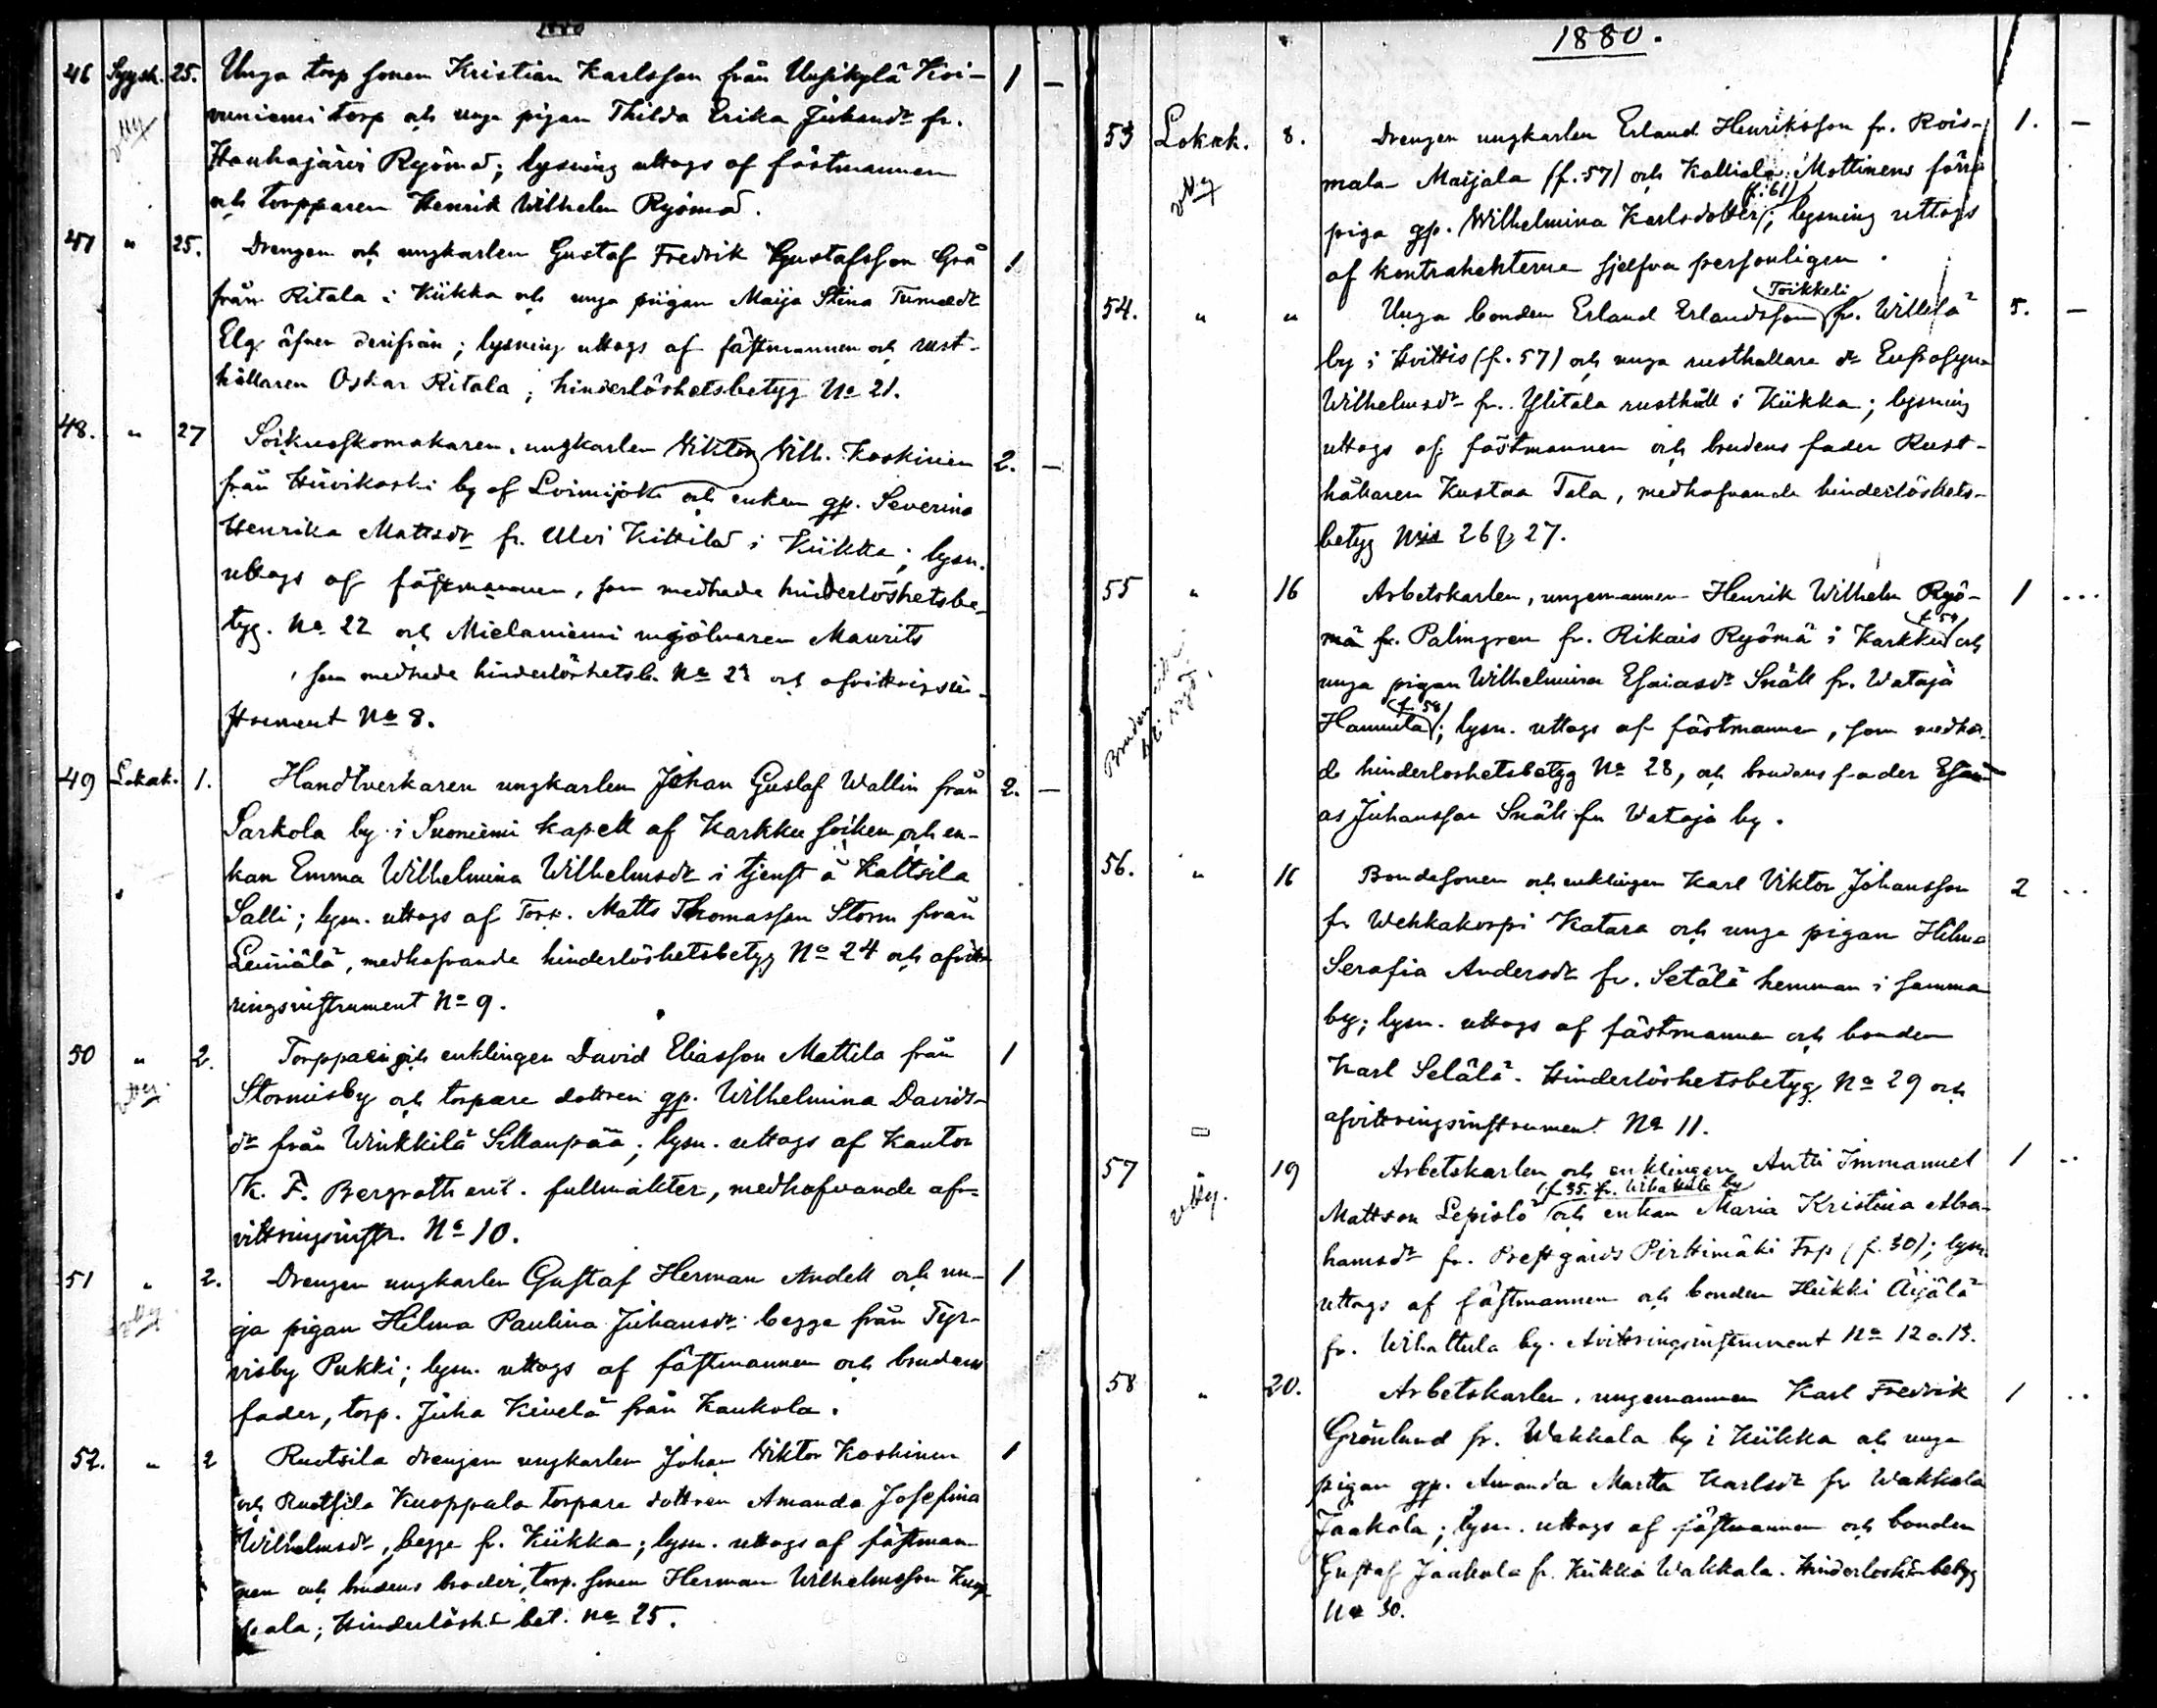 1880
46 Syysk. 25. Unga torp sonen Kristian Karlsson från Uusikylä Koi- 1 —
vuniemi torp och unga pigan Thilda Erika Juhansdr fr.
Houhajärvi Ryömä; lysning uttogs af fästmannen
och torpparen Henrik Wilhelm Ryömä.
47 " 25. Drengen och ungkarlen Gustaf Fredrik Gustafsson Grå 1
från Ritala i Kiikka och unga pigan Maija Stina
Elg äfven derifrån; lysning uttogs af fästmannen och rust-
hållaren Oskar Ritala; hinderlöshetsbetyg No 21.
48. " 27 Sockneskomakaren, ungkarlen Viktor Vilh. Koskinen 2. —
från Hirvikoski by af Loimijoki och enkan gp. Severina
Henrika Mattsdr fr. Ulvi Kittilä i Kiikka; lysn.
uttogs af fästmannen, som medhade hinderlöshetsbe-
tyg. No 22 och Mielaniemi mjölnaren Maurits
, som medhade hinderlöshetsb. No 23 och afvittringsin-
strument No 8.
49 Lokak. 1. Handtverkaren ungkarlen Johan Gustaf Wallin från 2. —
Sarkola by i Suoniemi kapell af Karkku socken och en-
kan Emma Wilhelmina Wilhelmsdr i tjenst å Kaltsila
Salli; lysn. uttogs af Torp. Matts Thomasson Storm från
Leiniälä, medhafvande hinderlöshetsbetyg No 24 och afvitt-
ringsinstrument No 9.
50 " 2. Torpparen och enklingen David Eliasson Mattila från 1
Stormisby och torpare dottren gp. Wilhelmina Davids-
dr från Winkkilä Sillanpää; lysn. uttogs af Kantor
K. F. Bergroth enl. fullmakter, medhafvande af-
vittringsinstr. No 10.
51 " 2. Drengen ungkarlen Gustaf Herman Andell och un- 1
ga pigan Helma Paulina Juhansdr begge från Tyr-
visby Pukki; lysn. uttogs af fästmannen och brudens
fader, torp. Juha Kivelä från Kaukola.
52. " 2 Ruotsila drengen ungkarlen Johan Viktor Koskinen 1
och Ruotsila Kuoppala torpare dottren Amanda Josefina
Wilhelmsdr, begge fr. Kiikka; lysn. uttogs af fästman
nen och brudens broder, torp. sonen Herman Wilhelmsson Kuop-
pala; Hinderlösh:s bet. No 25.
1880.
53 Lokak. 8. Drengen ungkarlen Erland Henriksson fr. Rois- 1. —
mala Maijala (f. 57) och Kalliala Mottinens förra
(f. 61)
piga gp. Wilhelmina Karlsdotter; lysning uttogs
af kontrahenterne sjelfva personligen.
Toikkeli
54. " " Unga bonden Erland Erlandsson fr. Willilä 5. —
by i Hvittis (f. 57) och unga rusthållare dr Eufrosyna
Wilhelmsdr fr. Ylitala rusthåll i Kiikka; lysning
uttogs af fästmannen och brudens fader Rust-
hållaren Kustaa Tala, medhafvande hinderlöshets-
betyg Nris 26 & 27.
55 " 16 Arbetskarlen, ungemannen Henrik Wilhelm Ryö- 1
f. 59
mä fr. Palmgren fr. Rikais Ryömä i Karkku och
unga pigan Wilhelmina Esaiasdr Snäll fr. Wataja
(f. 58)
Hannula; lysn. uttogs af fästmannen, som medha-
de hinderloshetsbetyg No 28, och brudens fader Esai-
as Juhansson Snäll fr Wataja by.
56. " 16 Bondesonen och enklingen Karl Viktor Johansson 2
fr Wehkakorpi Katara och unga pigan Hilma
Serafia Andersdr fr. Setälä hemman i samma
by; lysn. uttogs af fästmannen och bonden
Karl Setälä. Hinderlöshetsbetyg No 29 och
afvittringsinstrument No 11.
57 " 19 Arbetskarlen och enklingen Antti Immanuel 1
(f. 35. fr. Wihattula by
Mattson Lepistö och enkan Maria Kristina Abra-
hamsdr fr. Prestgårds Pirttimäki Torp (f. 30); lysn.
uttogs af fästmannen och bonden Heikki Äijälä
fr. Wihattula by. Avittringsinstrument No 12 o. 13.
58 " 20. Arbetskarlen, ungemannen Karl Fredrik 1
Grönlund fr. Wakkala by i Kiikka och unga
pigan gp. Amanda Martta Karlsdr fr Wakkala
Jaakola; lysn. uttogs af fästmannen och bonden
Gustaf Jaakola fr. Kiikka Wakkala. Hinderlösh:s betyg
No 30.